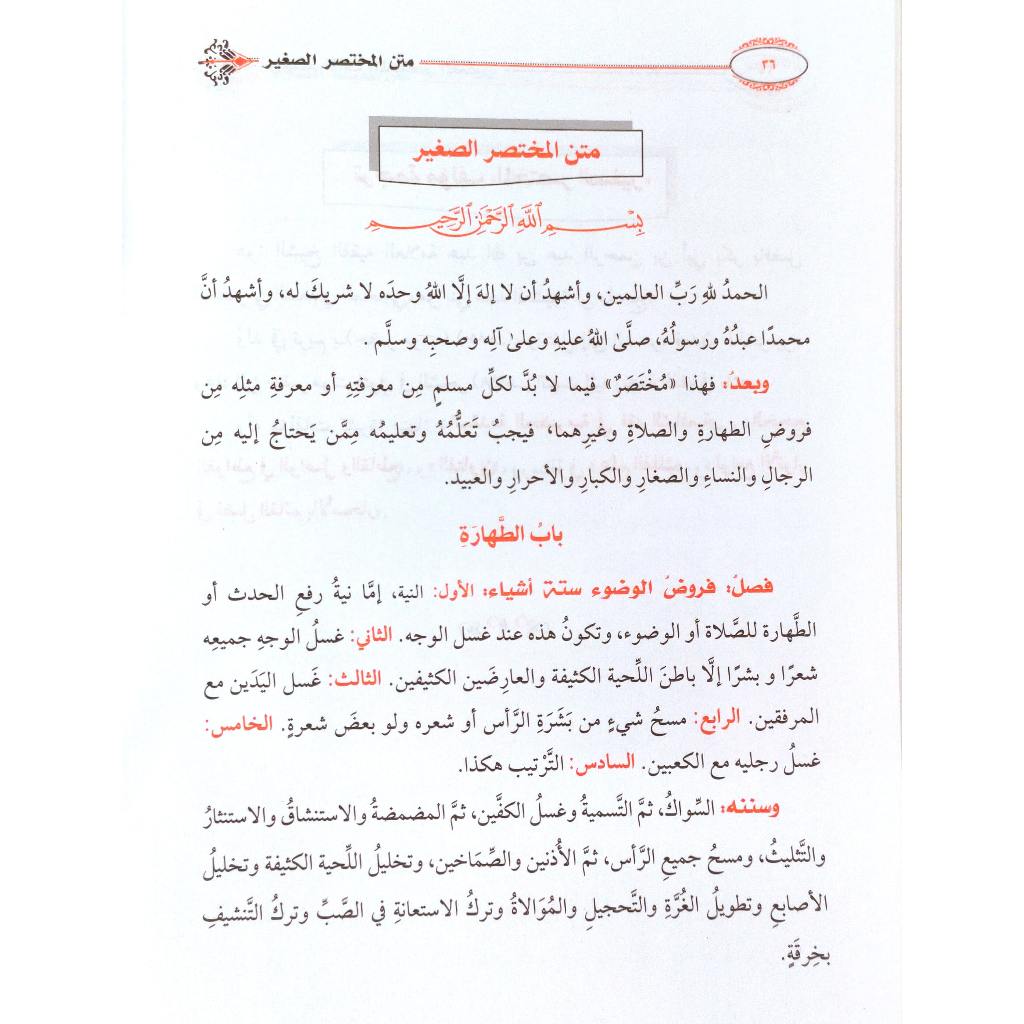 ٣٦
متن المختصر الصغير
متن المختصر الصغير
بِسْمِ ٱللَّهِ ٱلرَّحْمَٰنِ ٱلرَّحِيمِ
الحمدُ للهِ رَبِّ العالمين، وأشهدُ أن لا إلهَ إلَّا اللهُ وحدَه لا شريكَ له، وأشهدُ أنَّ
محمدًا عبدُهُ ورسولُهُ، صلَّى اللهُ عليهِ وعلى آلِه وصحبِه وسلَّم.
وبعدُ: فهذا «مُخْتَصَرٌ» فيما لا بُدَّ لكلِّ مسلمٍ مِن معرفتِهِ أو معرفةِ مثلِه مِن
فروضِ الطهارةِ والصلاةِ وغيرِهما، فيجبُ تَعَلُّمُهُ وتعليمُه مِمَّن يَحتاجُ إليه مِن
الرجالِ والنساءِ والصغارِ والكبارِ والأحرارِ والعبيد.
بابُ الطَّهارَةِ
فصلُ: فروضُ الوضوء ستة أشياء: الأول: النية، إمَّا نيةُ رفعِ الحدث أو
الطَّهارة للصَّلاة أو الوضوء، وتكونُ هذه عند غسل الوجه. الثاني: غسلُ الوجهِ جميعِه
شعرًا و بشرًا إلَّا باطنَ اللِّحية الكثيفة والعارِضَين الكثيفين. الثالث: غَسل اليَدَين مع
المرفقين. الرابع: مسحُ شيءٍ من بَشَرَةِ الرَّأس أو شعره ولو بعضَ شعرةٍ. الخامس:
غسلُ رجليه مع الكعبين. السادس: التَّرْتيب هكذا.
وسننه: السِّواكُ، ثمَّ التَّسميةُ وغسلُ الكفَّين، ثمَّ المضمضةُ والاستنشاقُ والاستنثارُ
والتَّثليثُ، ومسحُ جميعِ الرَّأس، ثمَّ الأُذنين والصِّمَاخين، وتخليلُ اللِّحية الكثيفة وتخليلُ
الأصابعِ وتطويلُ الغُرَّةِ والتَّحجيلِ والمُوَالاةُ وتركُ الاستعانةِ في الصَّبِّ وتركُ التَّنشيفِ
بخِرقَةٍ.